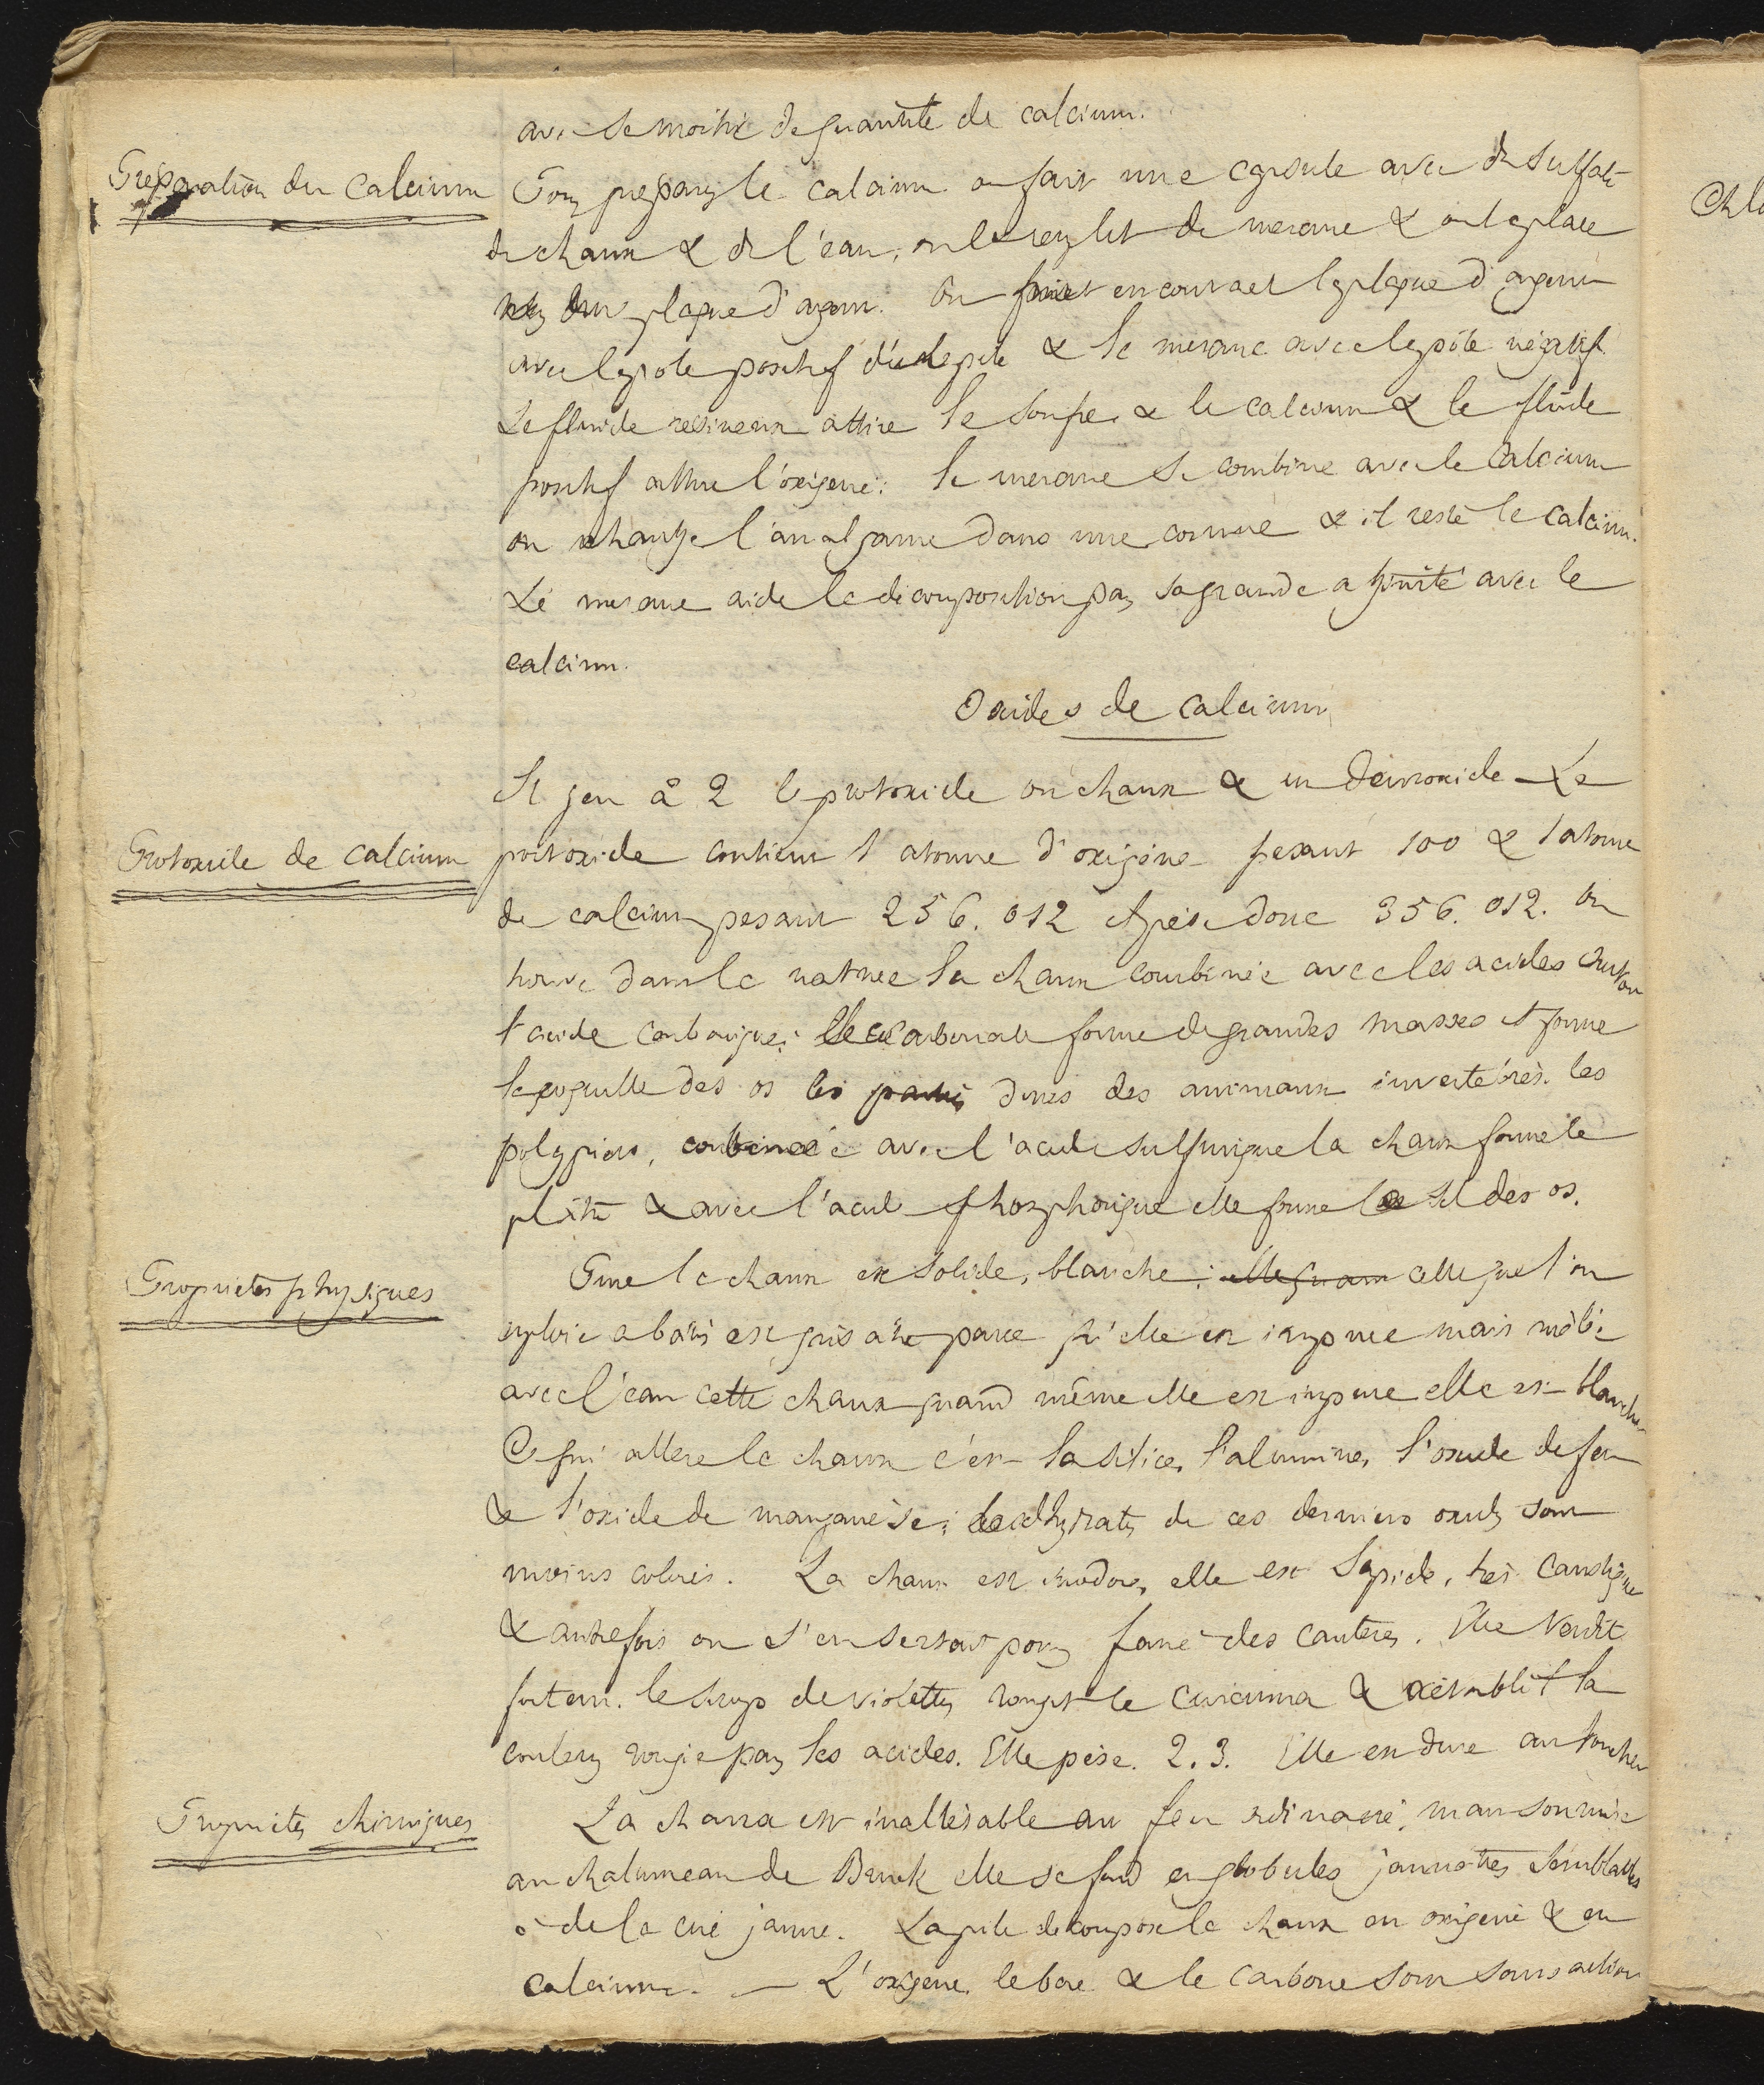 avec la moitié de quantité de calcium.
Preparation du Calcium
Pour preparer le calcium on fait une capsule avec du sulfate
de chaux & de l'eau, on la remplit de mercure & on la place
sur une plaque d'argent. On met en contact la plaque d'argent
avec le pole positif d'une pile & le mercure avec le pôle négatif
Le fluide resineux attire le soufre & le calcium & le fluide
positif attire l'oxigene: le mercure se combine avec le Calcium
on chauffe l'amalgame dans une cornue & il reste le calcium.
Le mercure aide la decomposition par sa grande afinité avec le
calcium.
Oxides de calcium
Il y en a 2 le protoxide ou chaux & un deutoxide. Le
Protoxide de calcium
protoxide contient 1 atome d'oxigène pesant 100 & 1 atome
de calcium pesant 256.012 il pèse donc 356.012. On
trouve dans la nature la chaux combinée avec les acides surtout
l'acide carbonique: le carbonate forme de grandes masses il forme
la coquille des os les parties dures des animaux invertébrés. les
polypiers, combinée avec l'acide sulfurique la chaux forme le
platre & avec l'acide phosphorique elle forme le sel des os.
Proprietés physiques
Pure la chaux est solide, blanche: elle quand celle que l'on
emploie a batir est grisatre parce qu'elle est impure mais mêlée
avec l'eau cette chaux quand même elle est impure elle est blanche
Ce qui altere la chaux c'est la silice, l'alumine, l'oxide de fer
& l'oxide de manganèse; les hydrates de ces derniers oxides sont
moins colorés. La chaux est inodore, elle est sapide, très caustique
& autrefois on s'en servait pour faire des cauteres. Elle verdit
fortem. le sirop de violettes rougit le curcuma & rétablit la
couleur rougie par les acides. Elle pèse. 2.3. Elle est dure au toucher
Proprietés chimiques
La chaux est inaltérable au feu ordinaire, mais soumise
au chalumeau de Brook elle se fond en globules jaunatres semblables
à de la cire jaune. La pile decompose la chaux en oxigene & en
calcium. — L'oxigene, le bore & le carbone sont sans action
Chlo